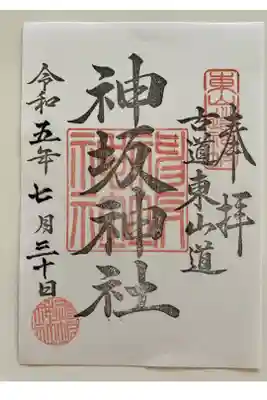 奉拝
古道東山道
神坂神社
令和五年七月三十日